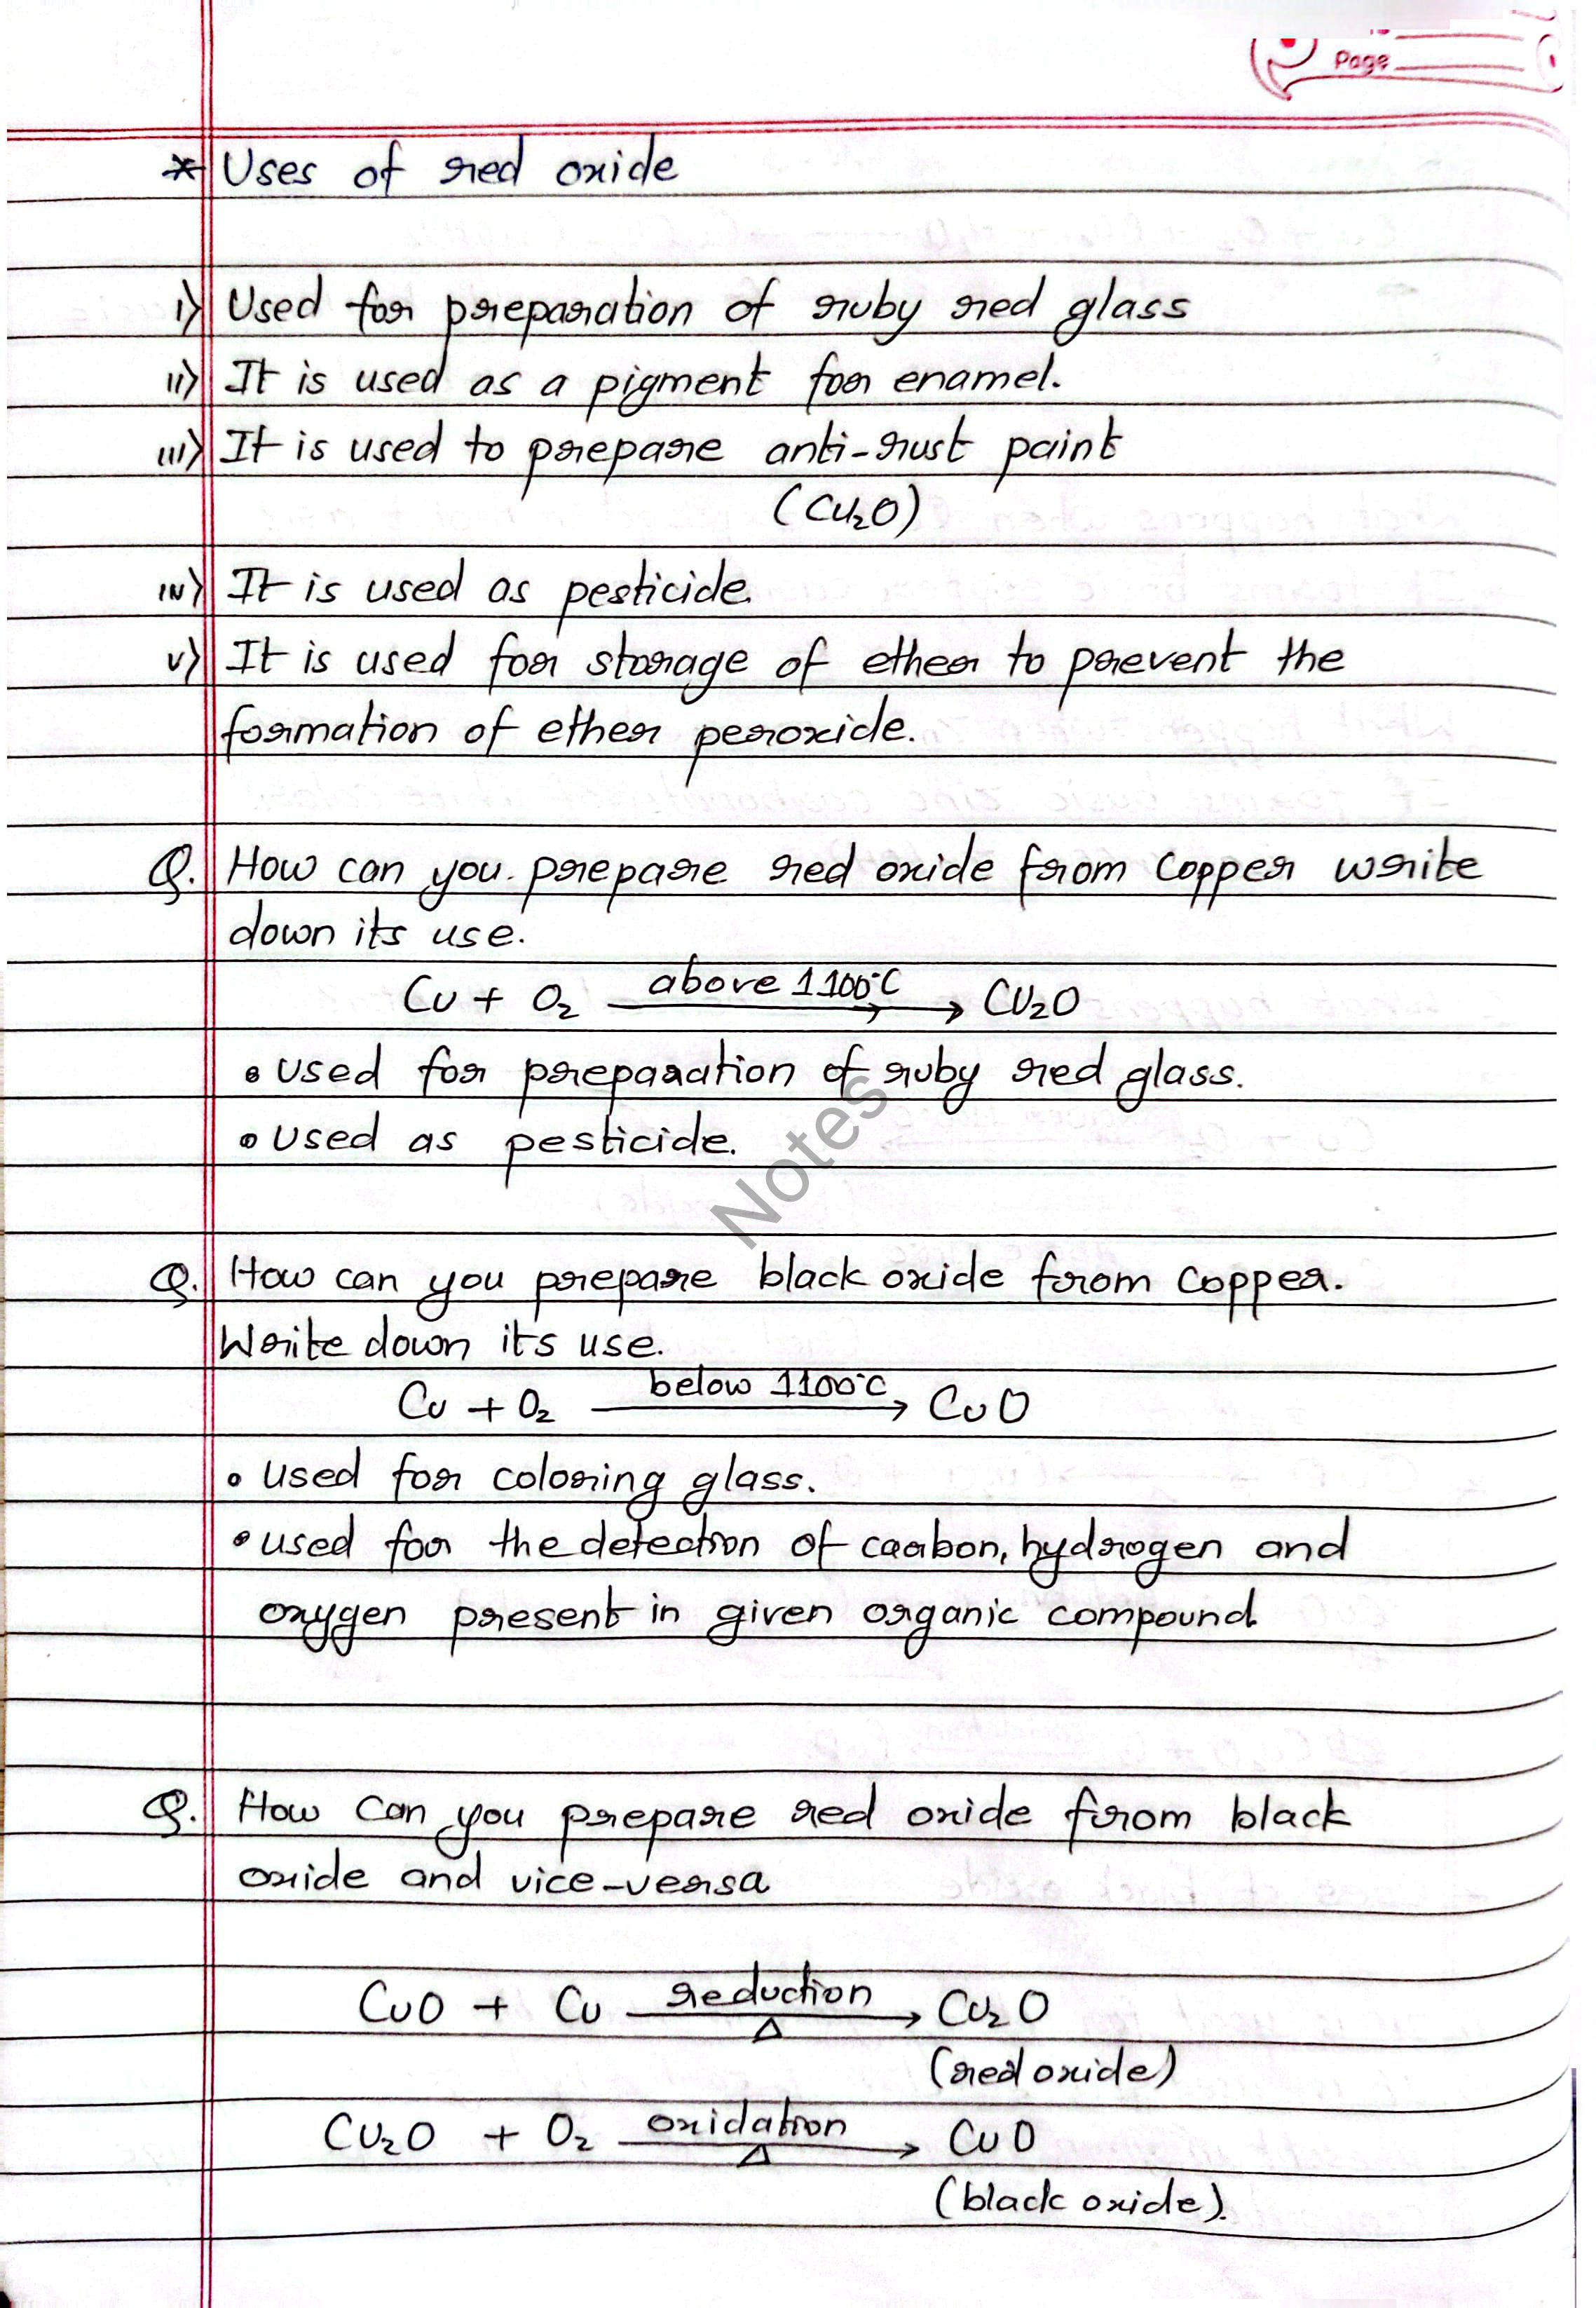 Page
* Uses of red oxide
i) Used for preparation of ruby red glass
ii) It is used as a pigment for enamel.
iii) It is used to prepare anti-rust paint
(Cu₂O)
iv) It is used as pesticide.
v) It is used for storage of ether to prevent the
formation of ether peroxide.
Q. How can you prepare red oxide from copper write
down its use.
Cu + O₂ —above 1100°C→ Cu₂O
• used for preparation of ruby red glass.
• used as pesticide.
Notes
Q. How can you prepare black oxide from copper.
Write down its use.
Cu + O₂ —below 1100°C→ CuO
• used for coloring glass.
• used for the detection of carbon, hydrogen and
oxygen present in given organic compound.
Q. How can you prepare red oxide from black
oxide and vice-versa
CuO + Cu —reduction/Δ→ Cu₂O
(red oxide)
Cu₂O + O₂ —oxidation/Δ→ CuO
(black oxide).